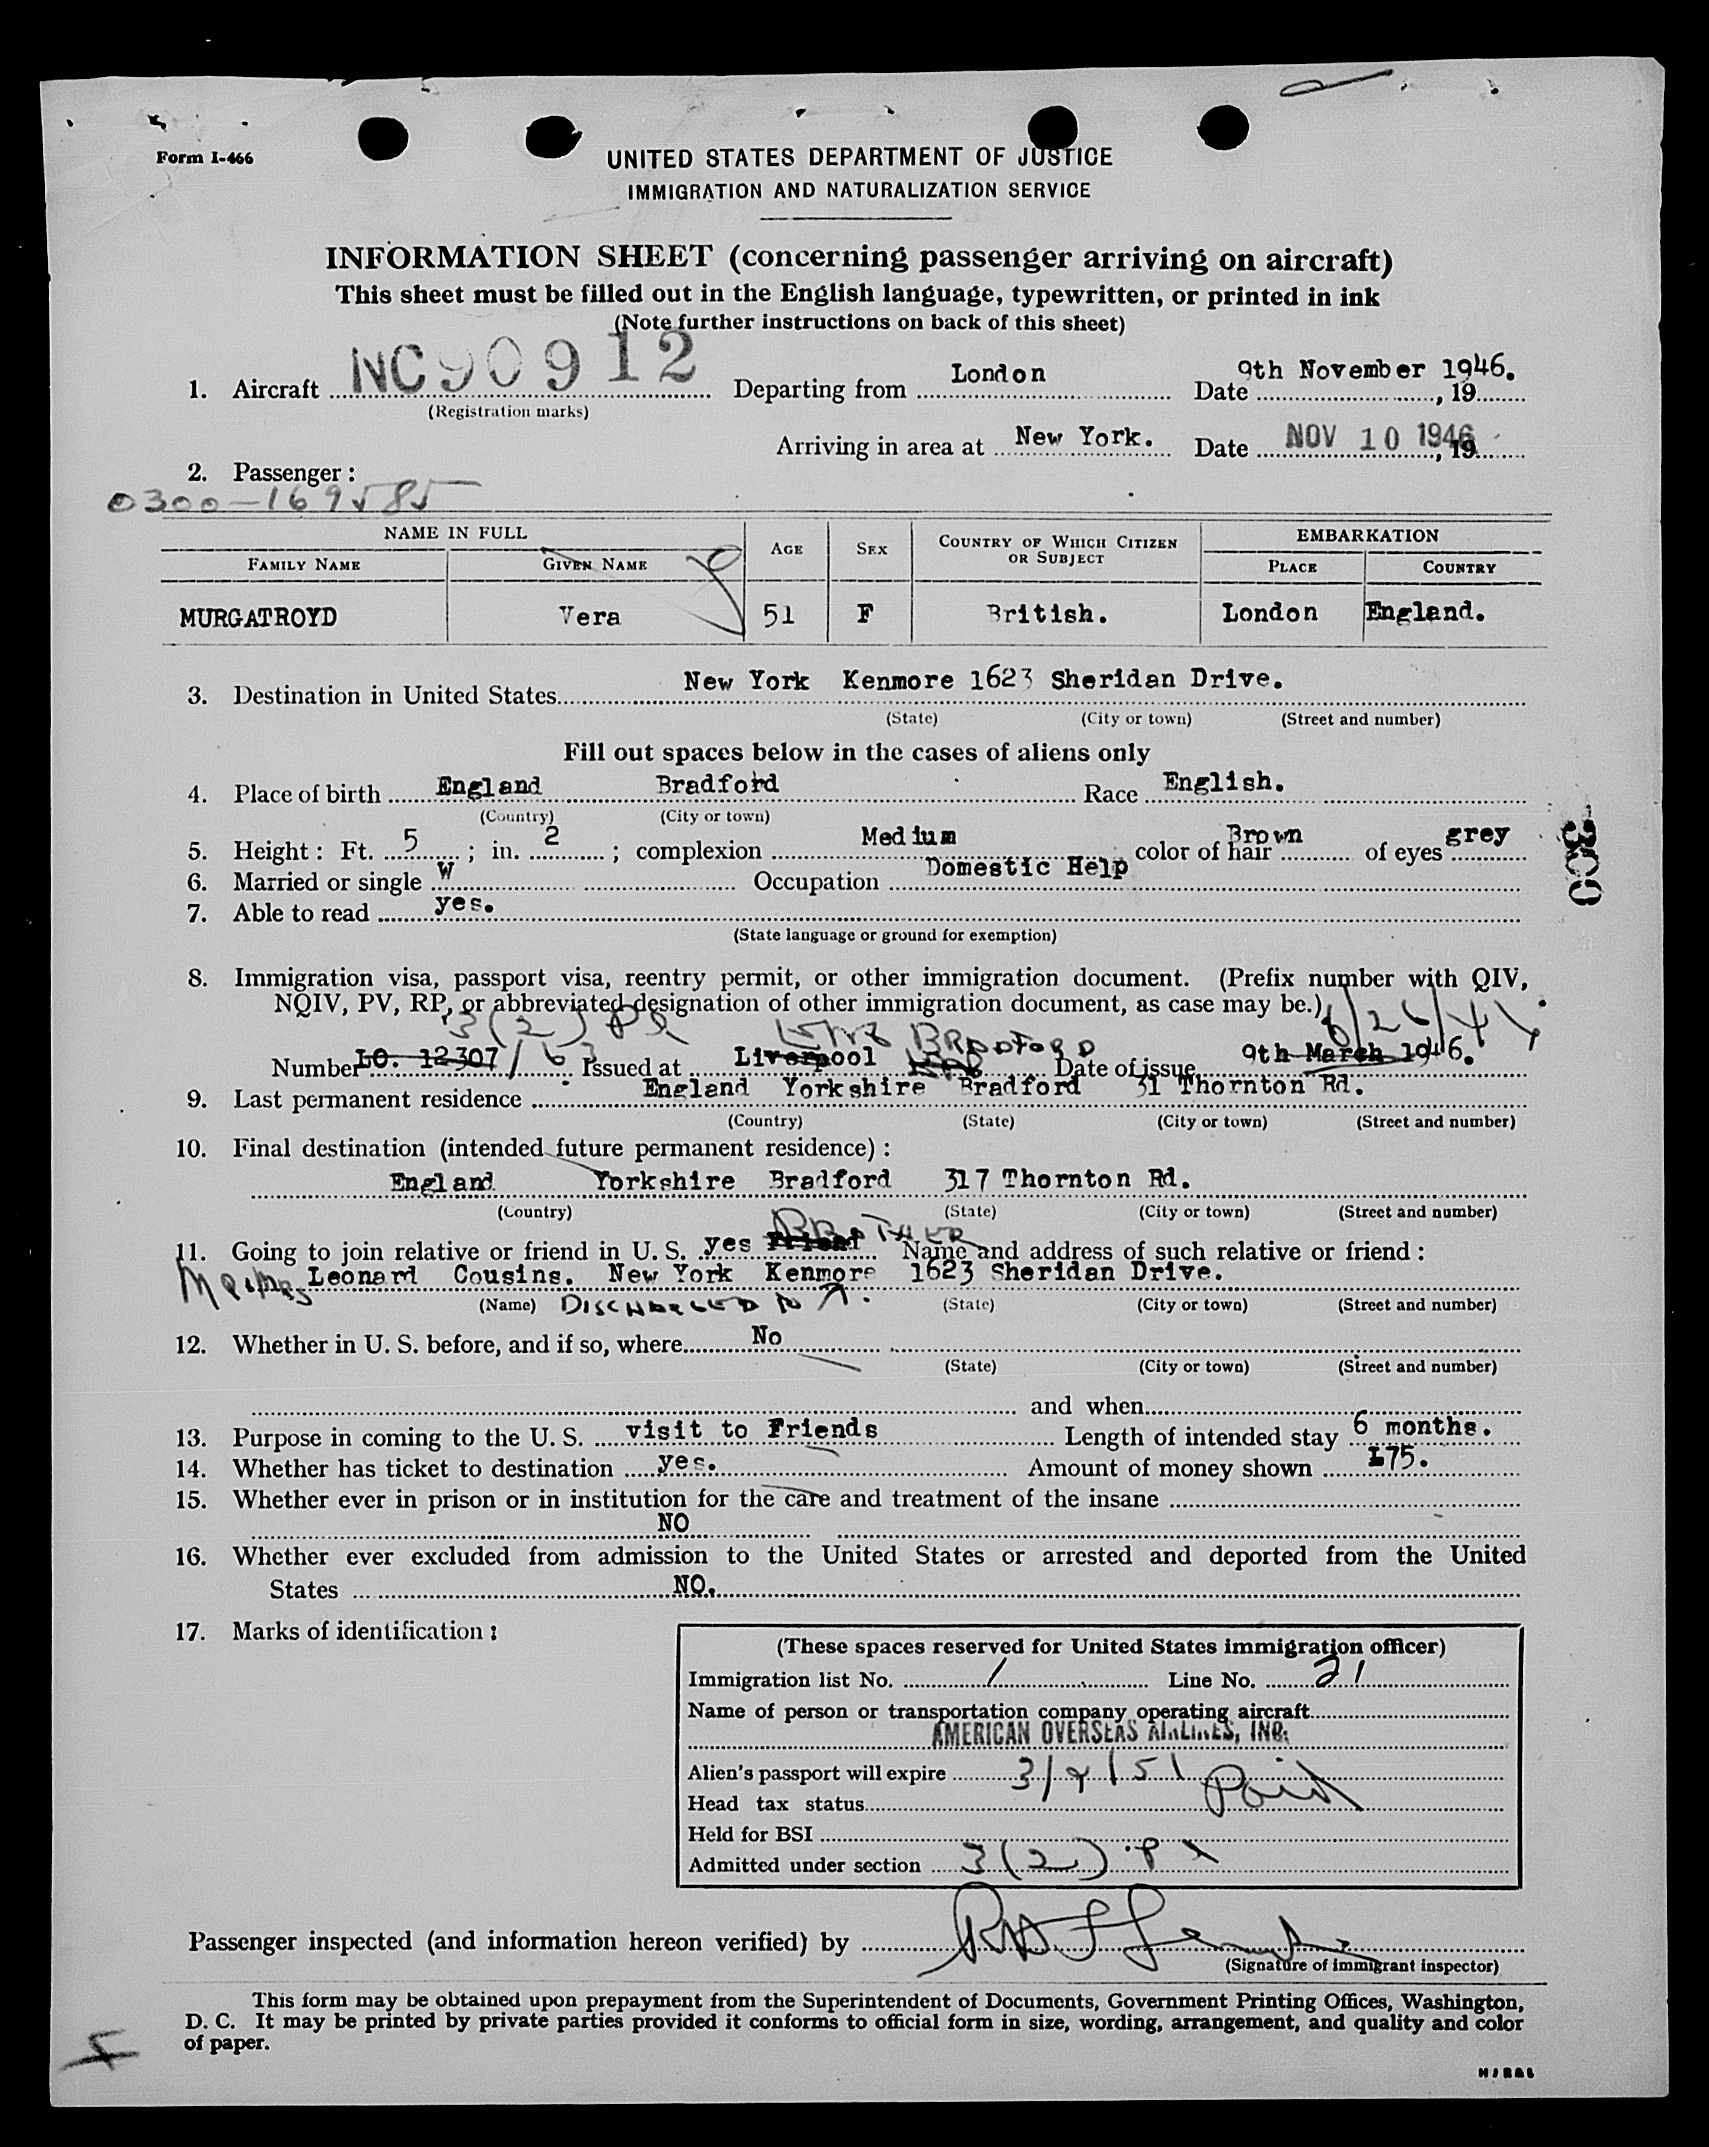 Form I-466
UNITED STATES DEPARTMENT OF JUSTICE
IMMIGRATION AND NATURALIZATION SERVICE
INFORMATION SHEET (concerning passenger arriving on aircraft)
This sheet must be filled out in the English language, typewritten, or printed in ink
(Note further instructions on back of this sheet)
1. Aircraft NC90912 Departing from London Date 9th November 1946. , 19
(Registration marks)
Arriving in area at New York. Date NOV 10 1946 , 19
2. Passenger :
0300-169585
NAME IN FULL AGE SEX COUNTRY OF WHICH CITIZEN OR SUBJECT EMBARKATION
FAMILY NAME GIVEN NAME PLACE COUNTRY
MURGATROYD Vera 51 F British. London England.
3. Destination in United States New York Kenmore 1623 Sheridan Drive.
(State) (City or town) (Street and number)
Fill out spaces below in the cases of aliens only
4. Place of birth England Bradford Race English.
(Country) (City or town)
5. Height : Ft. 5 ; in. 2 ; complexion Medium color of hair Brown of eyes grey
300
6. Married or single W Occupation Domestic Help
7. Able to read yes.
(State language or ground for exemption)
8. Immigration visa, passport visa, reentry permit, or other immigration document. (Prefix number with QIV,
NQIV, PV, RP, or abbreviated designation of other immigration document, as case may be.)
3(2) BRADFORD 6/26/44
Number LO. 12307 / 63 Issued at Liverpool Date of issue 9th March 1946.
9. Last permanent residence England Yorkshire Bradford 31 Thornton Rd.
(Country) (State) (City or town) (Street and number)
10. Final destination (intended future permanent residence) :
England Yorkshire Bradford 317 Thornton Rd.
(Country) (State) (City or town) (Street and number)
BROTHER
11. Going to join relative or friend in U. S. yes Friend Name and address of such relative or friend :
Leonard Cousins. New York Kenmore 1623 Sheridan Drive.
(Name) DISCHARGED TO (State) (City or town) (Street and number)
12. Whether in U. S. before, and if so, where No
(State) (City or town) (Street and number)
and when
13. Purpose in coming to the U. S. visit to Friends Length of intended stay 6 months.
14. Whether has ticket to destination yes. Amount of money shown £75.
15. Whether ever in prison or in institution for the care and treatment of the insane
NO
16. Whether ever excluded from admission to the United States or arrested and deported from the United
States NO.
17. Marks of identification :
(These spaces reserved for United States immigration officer)
Immigration list No. 1 Line No. 21
Name of person or transportation company operating aircraft
AMERICAN OVERSEAS AIRLINES, INC.
Alien's passport will expire 3/8/51
Head tax status Paid
Held for BSI
Admitted under section 3(2)
Passenger inspected (and information hereon verified) by
(Signature of immigrant inspector)
This form may be obtained upon prepayment from the Superintendent of Documents, Government Printing Offices, Washington,
D. C. It may be printed by private parties provided it conforms to official form in size, wording, arrangement, and quality and color
of paper.